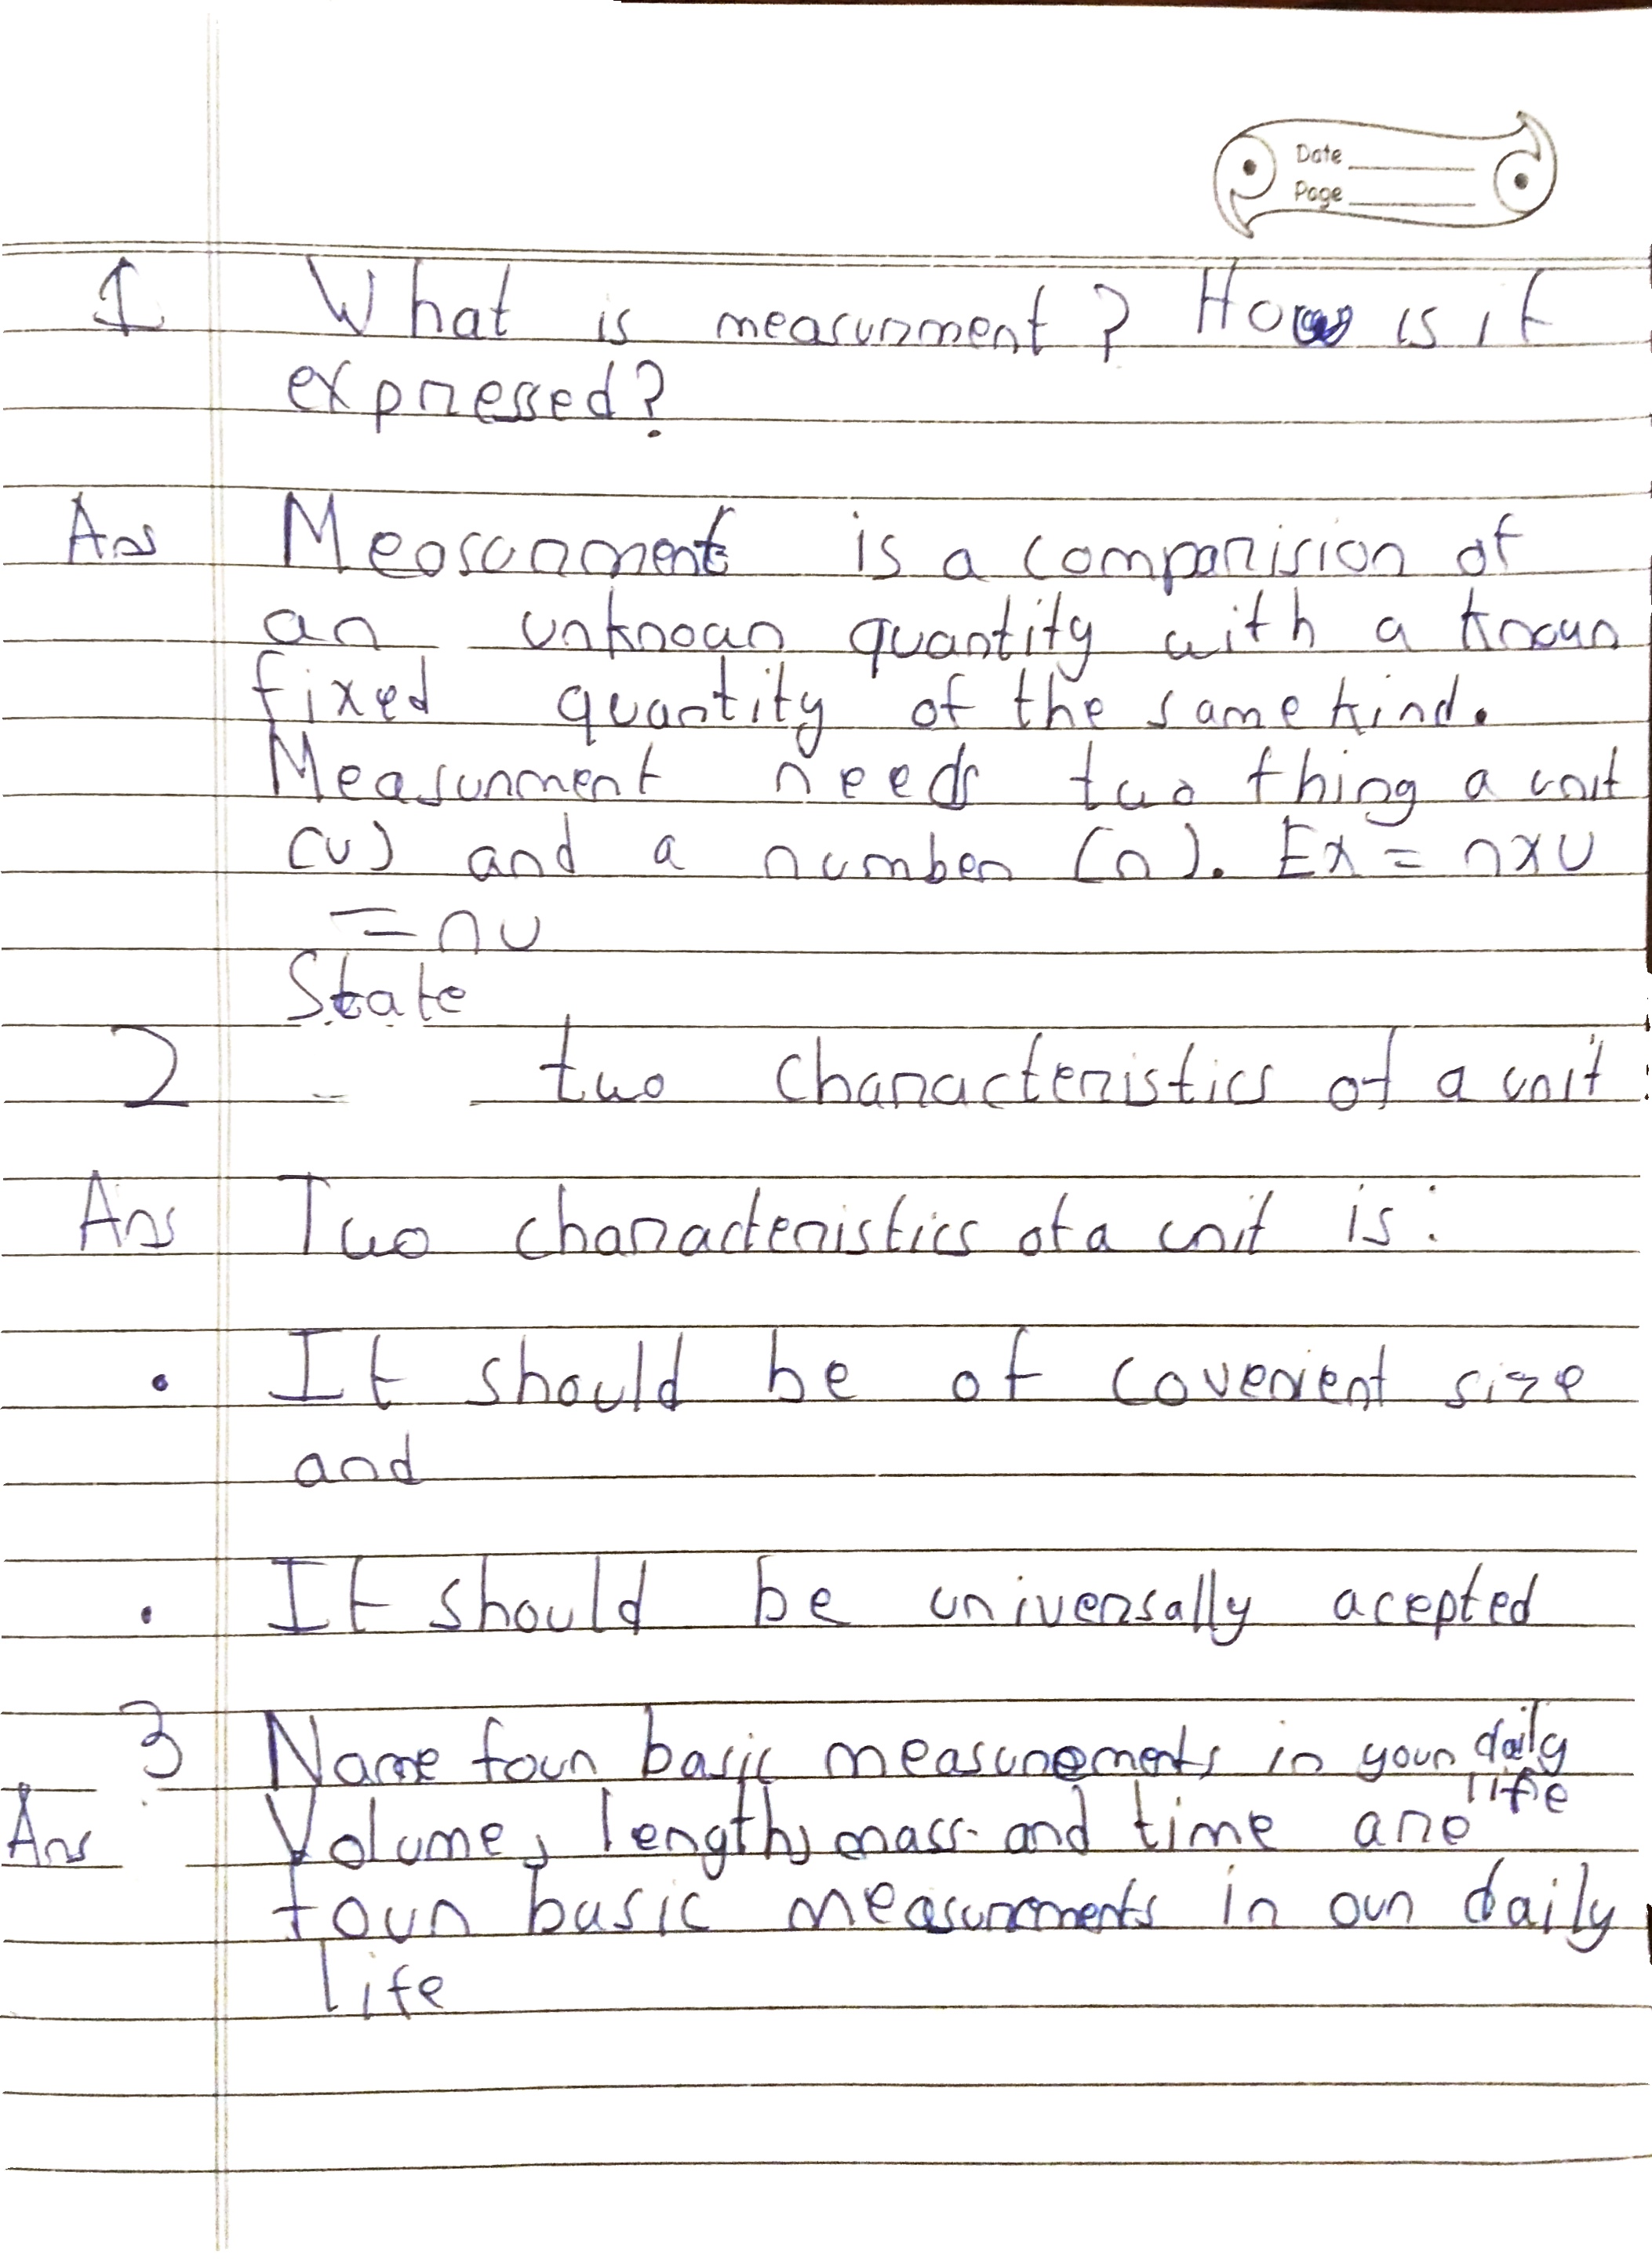 Date
Page
1 What is measurment? How is it
expressed?
Ans Measurment is a comparision of
an unknown quantity with a known
fixed quantity of the same kind.
Measurment needs two thing a unit
(u) and a number (n). Ex = n x u
= nu
State
2 two characteristics of a unit:
Ans Two characteristics of a unit is:
• It should be of covenient size
and
• It should be universally acepted
3 Name four basic measurements in your daily
life
Ans Volume, length, mass and time are
four basic measurments in our daily
life